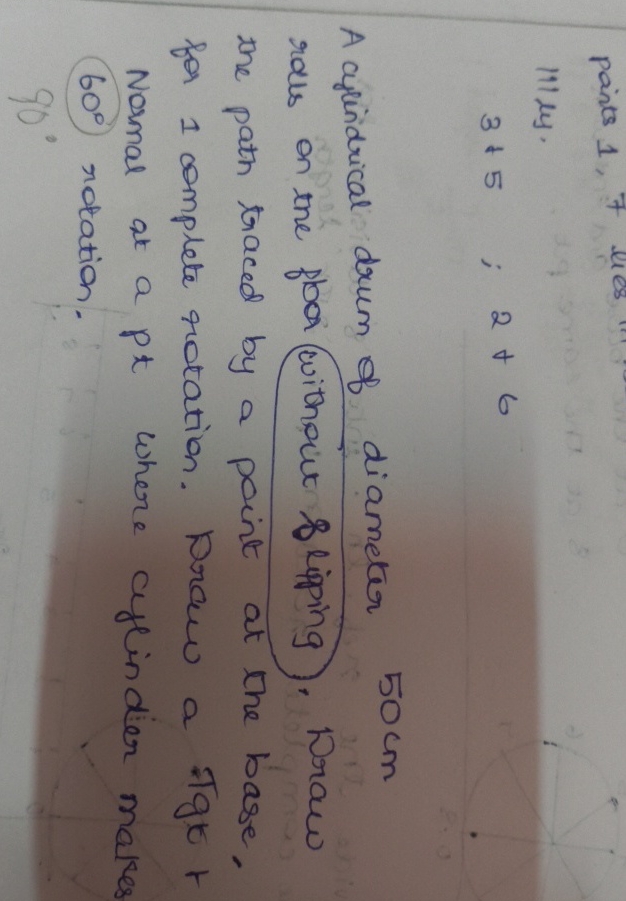 points 1, 7 lies in
lllly.
3 + 5 ; 2 + 6
A cylindrical drum of diameter 50cm
rolls on the floor without slipping. Draw
the path traced by a point at the base,
for 1 complete rotation. Draw a Tgt +
Normal at a pt where cylinder makes
60° rotation.
90°